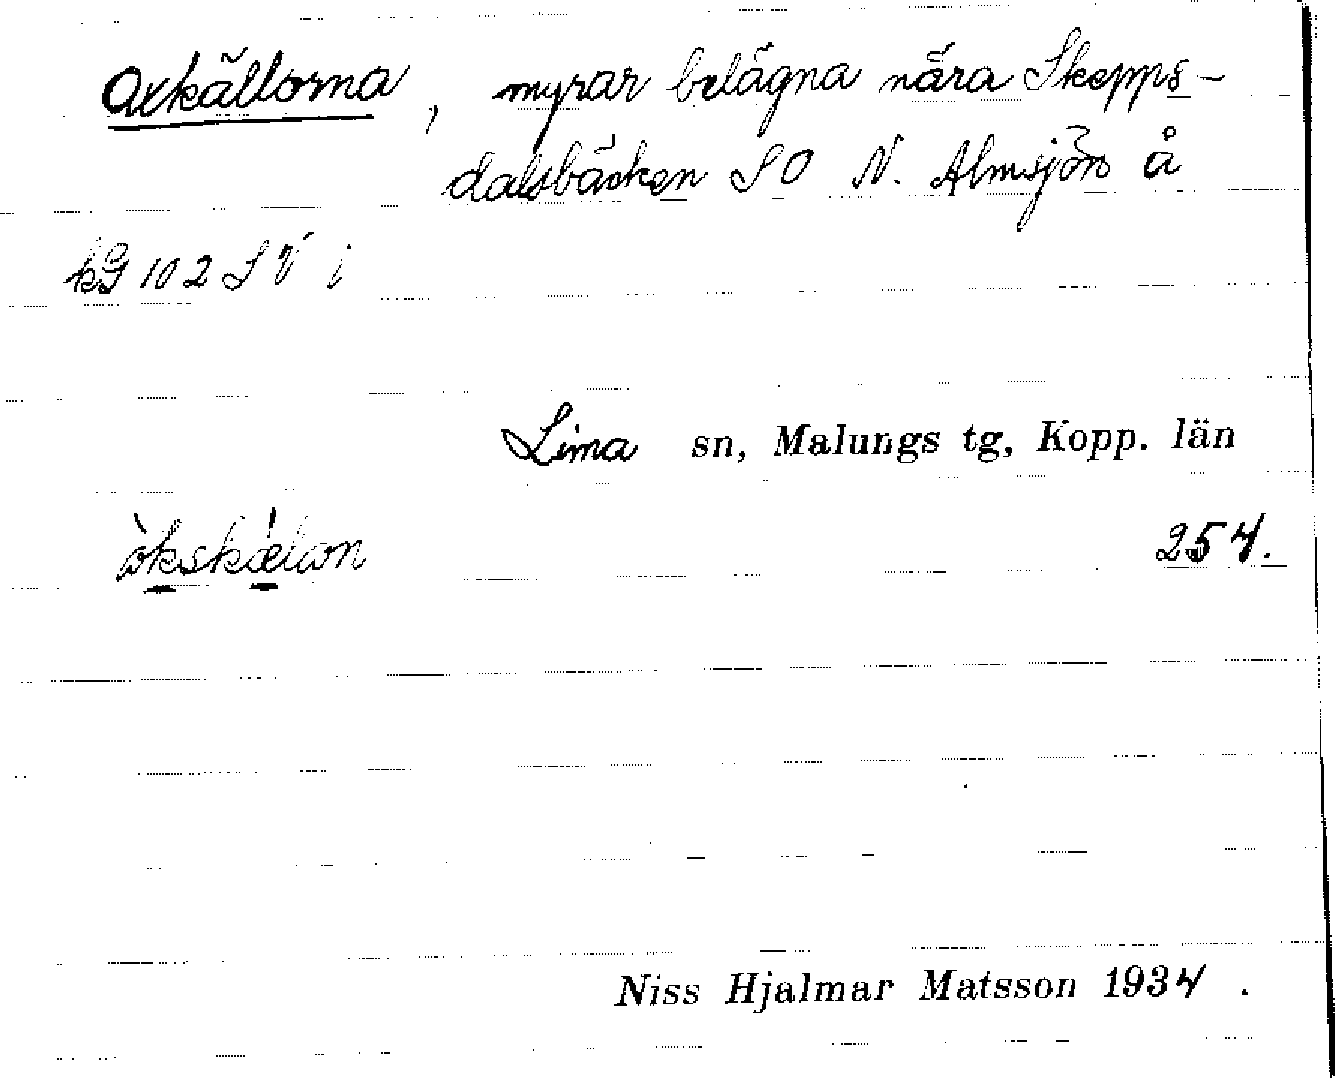 Oxkällorna, myrar belägna nära Skepps-
dalsbäcken SO N. Almsjön å
kG 102 SV i
Lima sn, Malungs tg, Kopp. län
òkskǽlan 254.
Niss Hjalmar Matsson 1934.